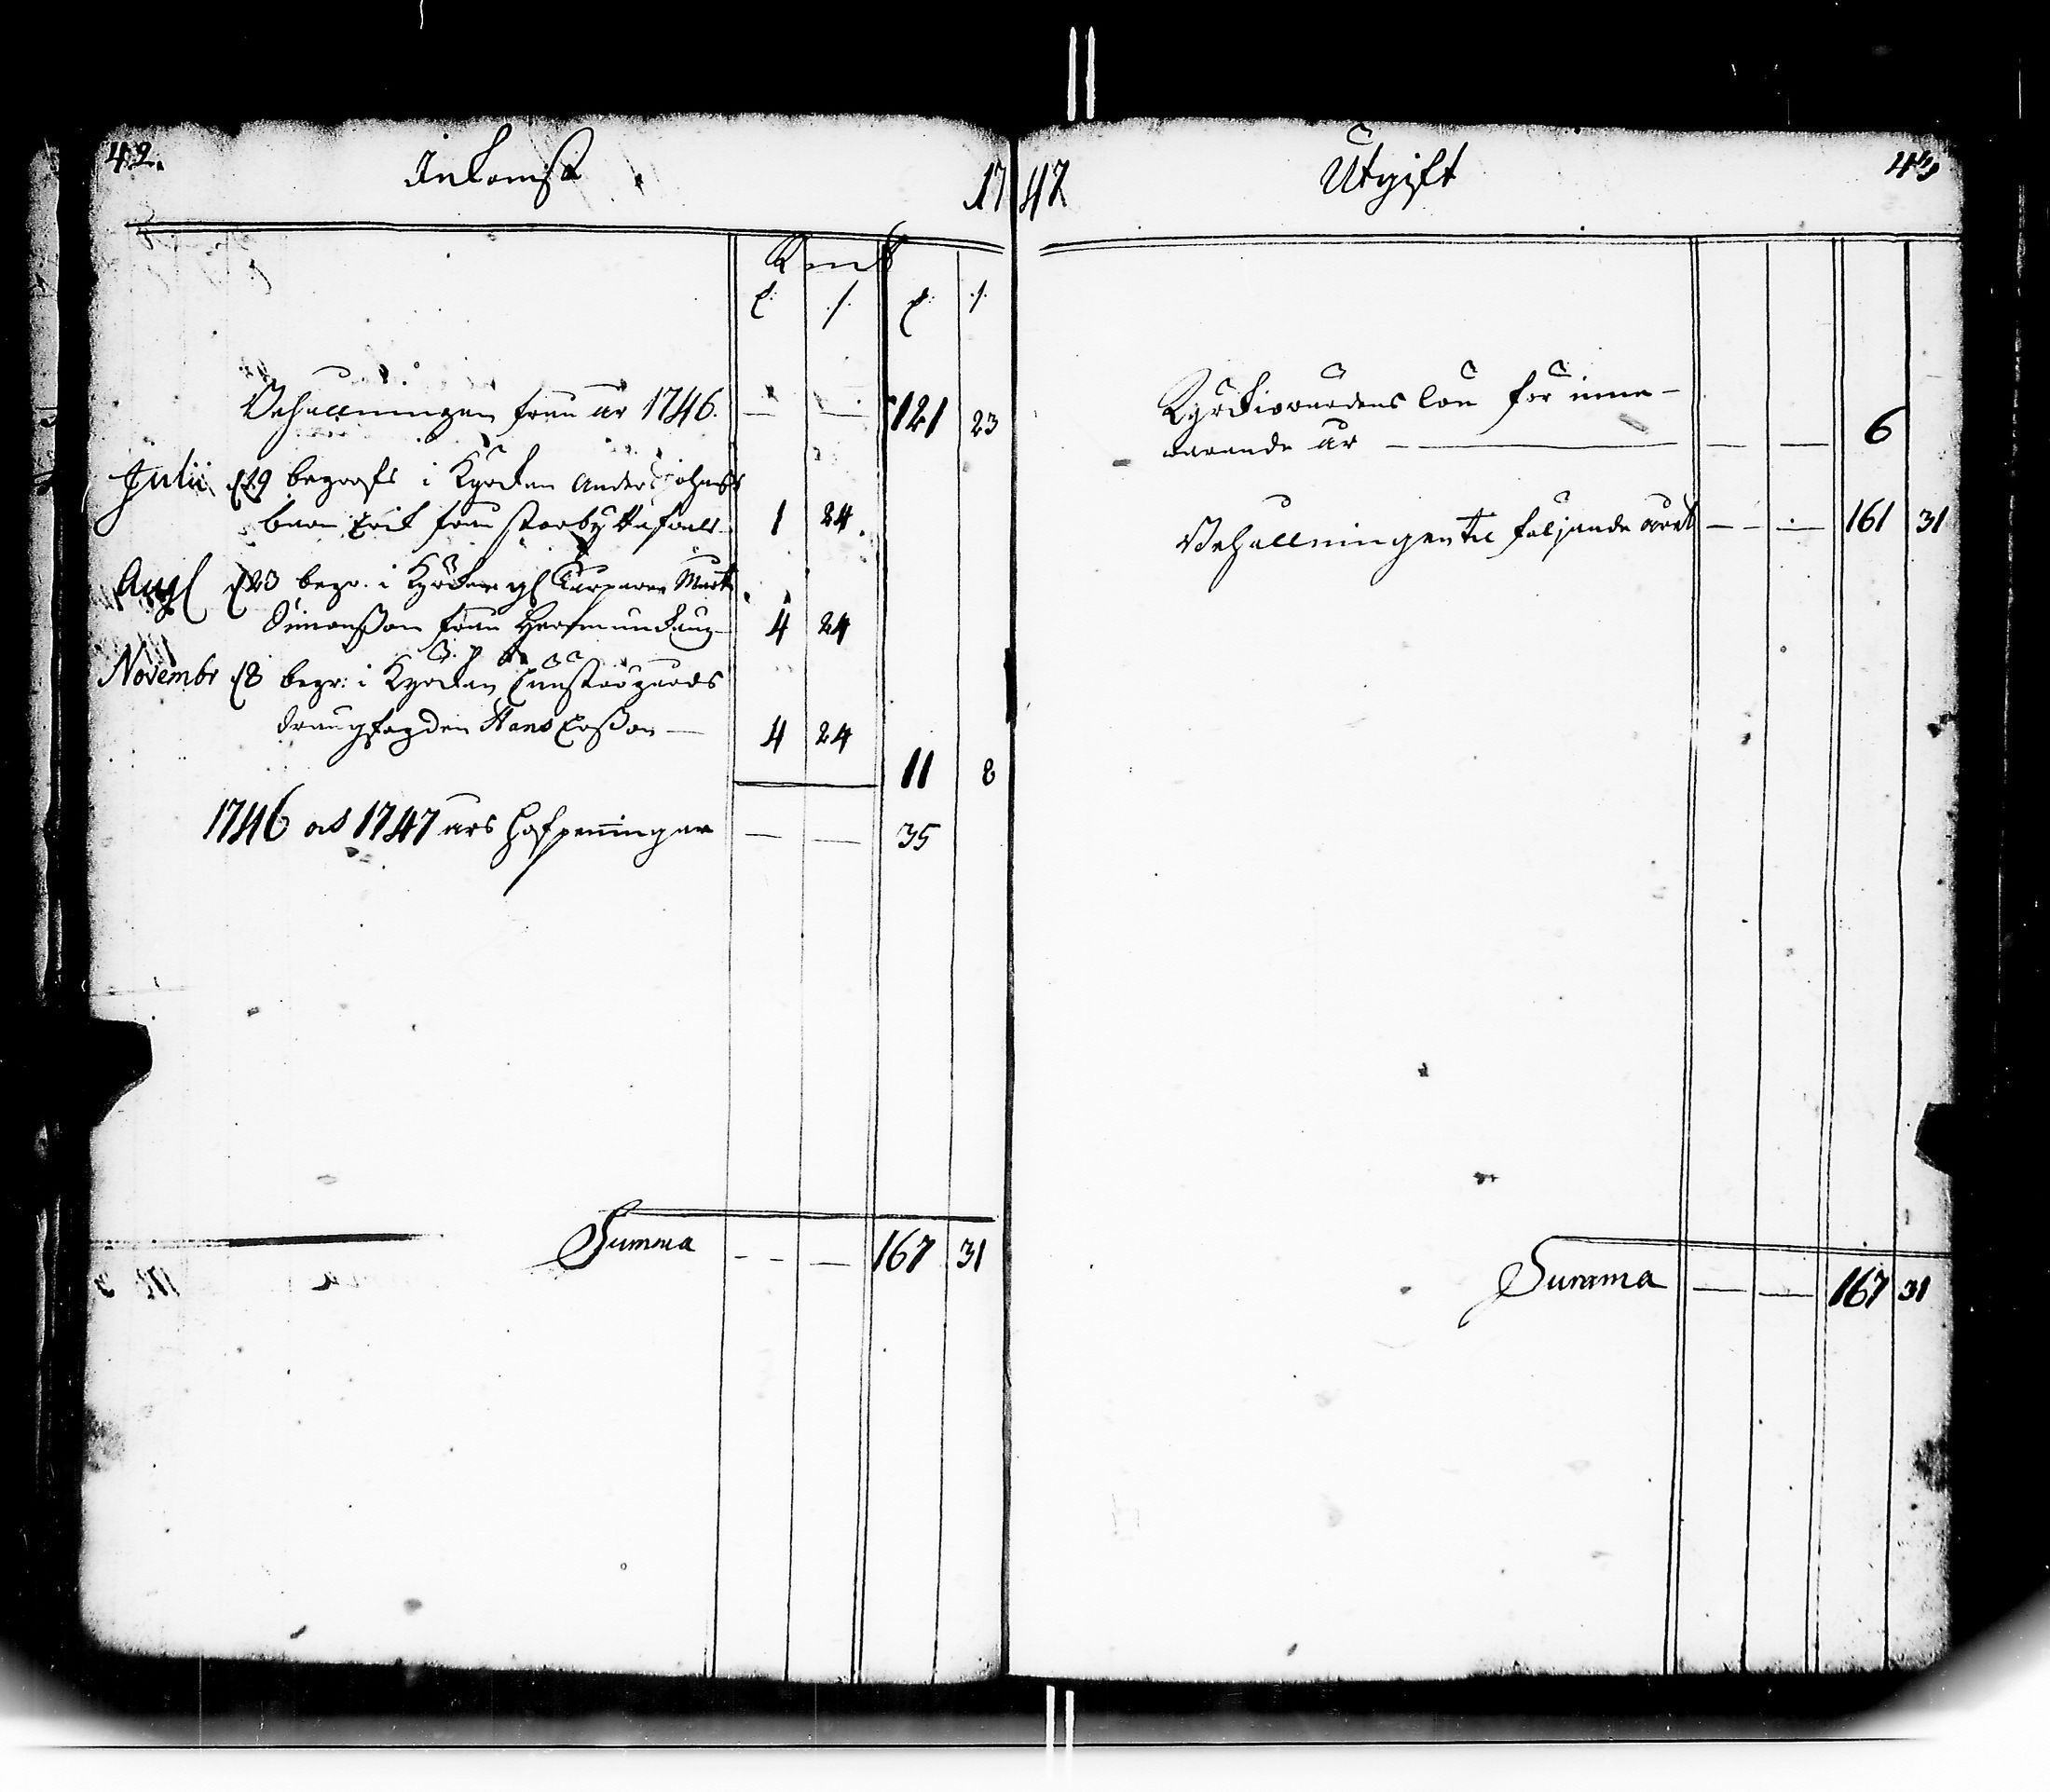 42.
Inkomst
17
Kmt
d. s. d. s.
Behållningen från år 1746. — — 121 23
Julii d 19 begrofs i Kyrckan Anders Johans
barn Erik från 1 24.
Aug d 23 begr. i Kyrckan Mårt
Simonsson från 4 24
Novembr d 8 begr: i Kyrckan
Hans Ersson — 4 24
11 8
1746 och 1747 års Hafpenningar — — 35
Summa — — 167 31
47
Utgift
43
Kyrckiowärdens lön för inne-
warande år — — — 6
Behållningen til följande året — — 161 31
Summa — — 167 31